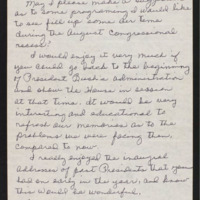 May I please make a suggestion
as to some programing I would like
to see fill up some air time
during the August Congressional
recess?
I would enjoy it very much if
you could go back to the beginning
of President Bush's administration
and show the House in session
at that time. It would be very
interesting and educational to
refresh our memories as to the
problems we were facing then,
compared to now.
I really enjoyed the inaugural
addresses of past Presidents that you
had on early in the year, and know
this would be wonderful.